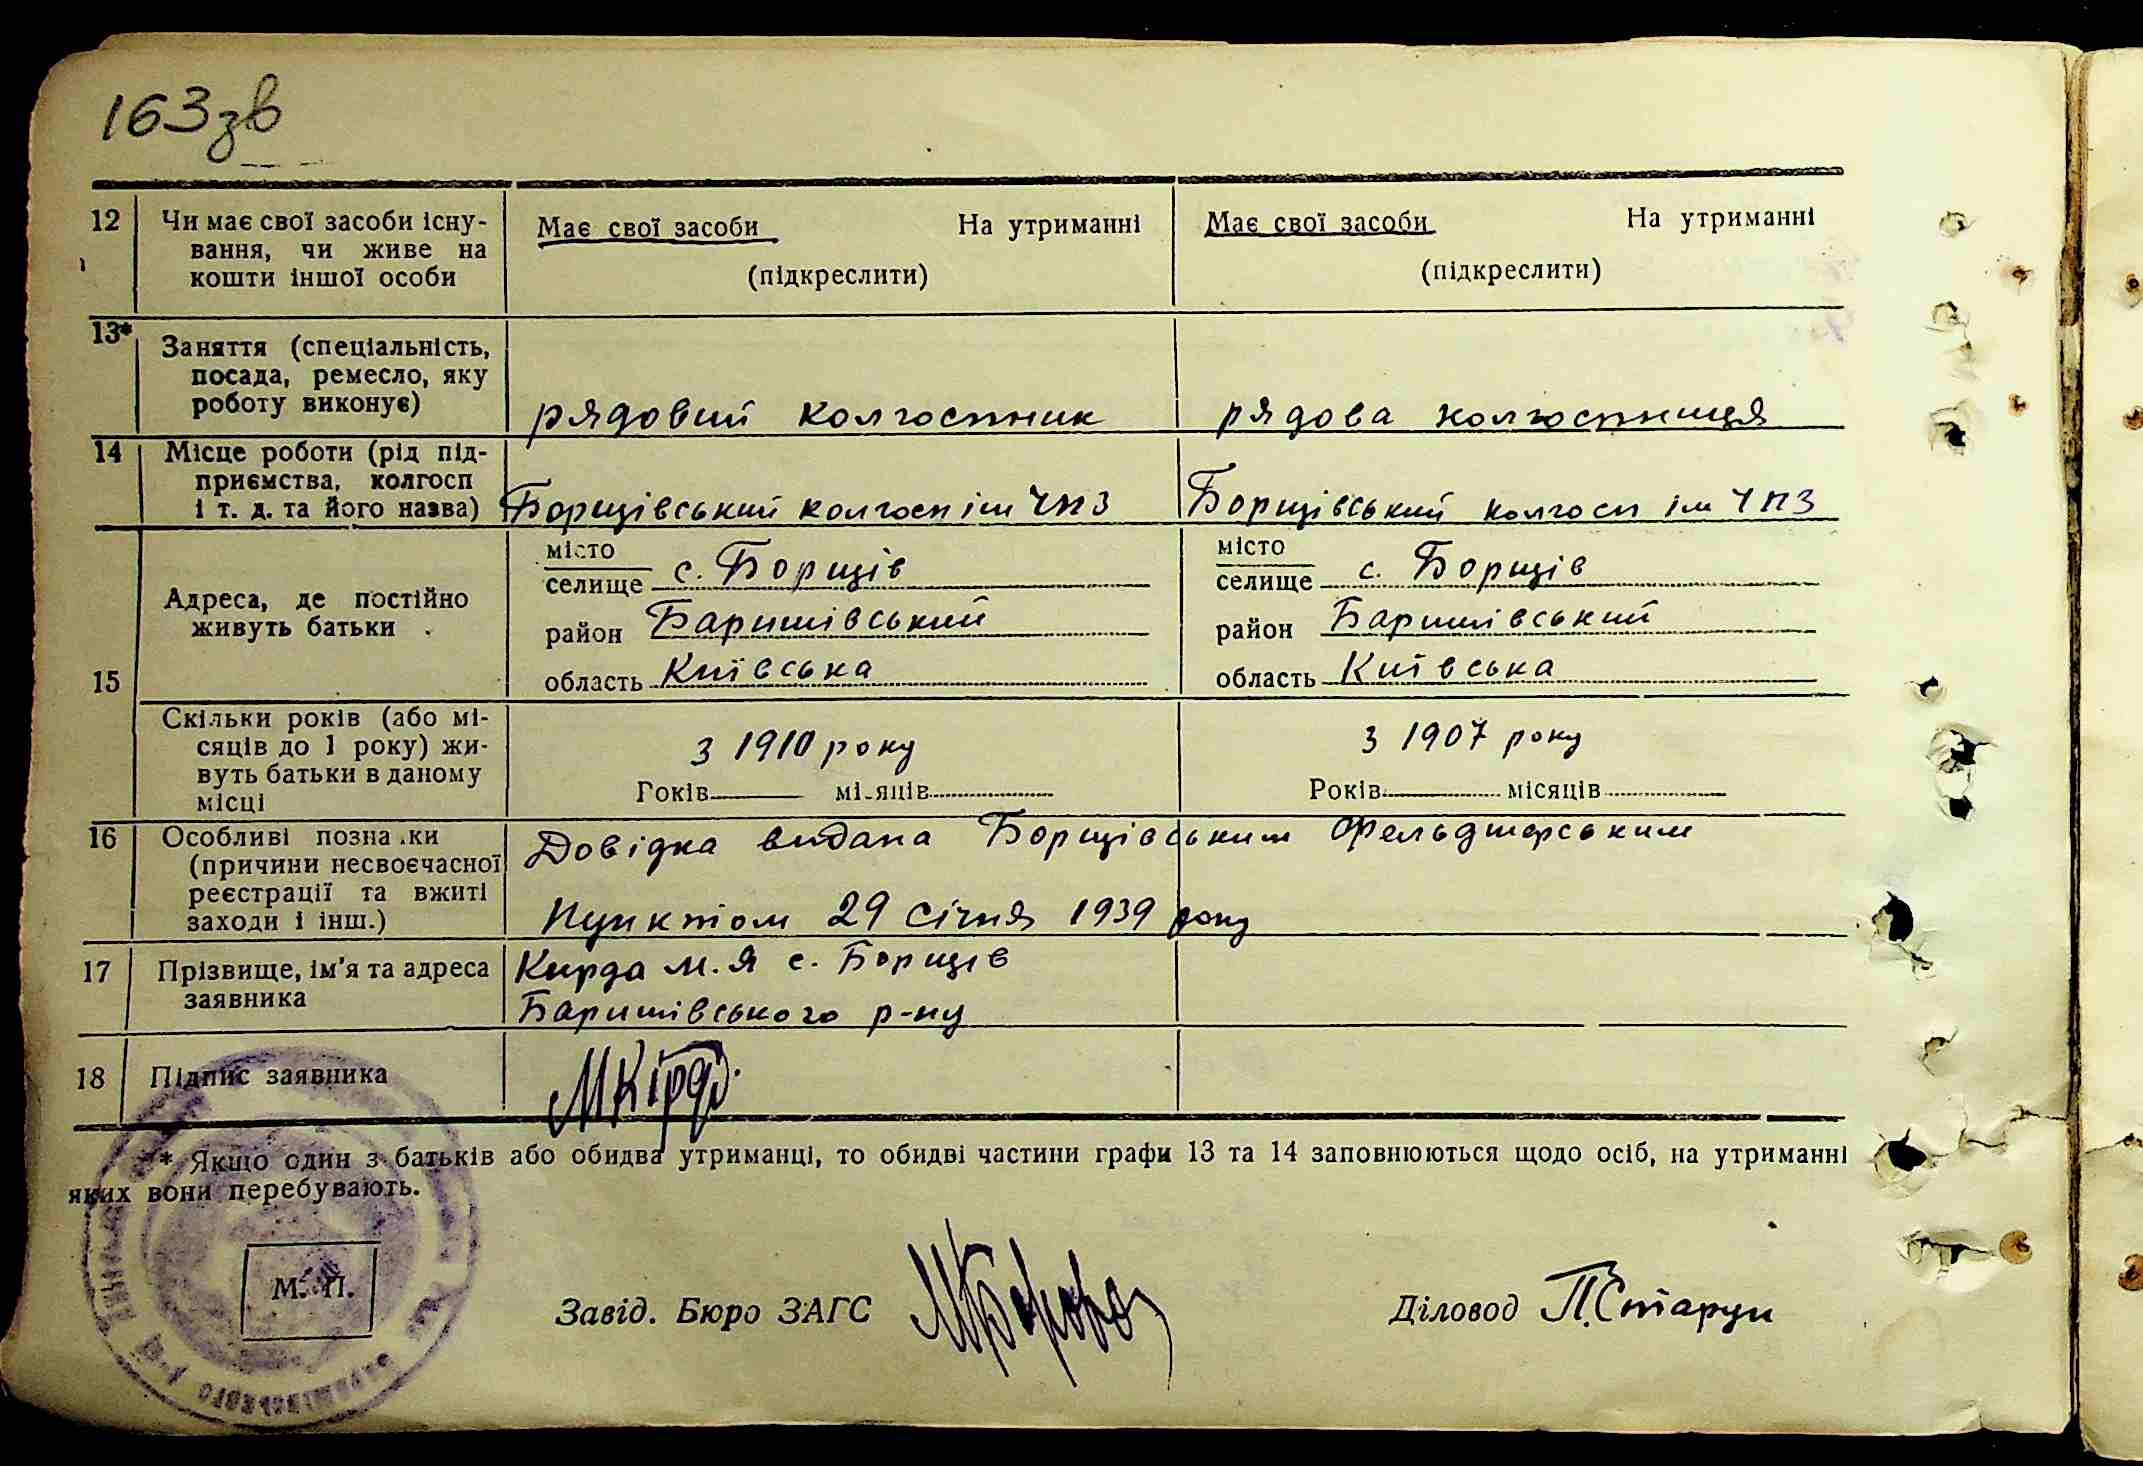 163зв
12 Чи має свої засоби існу- Має свої засоби На утриманні Має свої засоби На утриманні
вання, чи живе на
кошти іншої особи (підкреслити) (підкреслити)
13* Заняття (спеціальність,
посада, ремесло, яку
роботу виконує) рядовий колгоспник рядова колгоспниця
14 Місце роботи (рід під-
приємства, колгосп
і т. д. та його назва) Борщівський колгосп ім ЧПЗ Борщівський колгосп ім ЧПЗ
15 Адреса, де постійно
живуть батьки
місто
селище с. Борщів
район Баришівський
область Київська
місто
селище с. Борщів
район Баришівський
область Київська
Скільки років (або мі-
сяців до 1 року) жи-
вуть батьки в даному
місці
з 1910 року
Років місяців
з 1907 року
Років місяців
16 Особливі позначки
(причини несвоєчасної
реєстрації та вжиті
заходи і інш.)
Довідка видана Борщівським Фельдшерським
пунктом 29 січня 1939 року
17 Прізвище, ім'я та адреса
заявника
Кирда М. Я с. Борщів
Баришівського р-ну
18 Підпис заявника МКірда
* Якщо один з батьків або обидва утриманці, то обидві частини графи 13 та 14 заповнюються щодо осіб, на утриманні
яких вони перебувають.
М. П.
Завід. Бюро ЗАГС
Діловод П.Старун